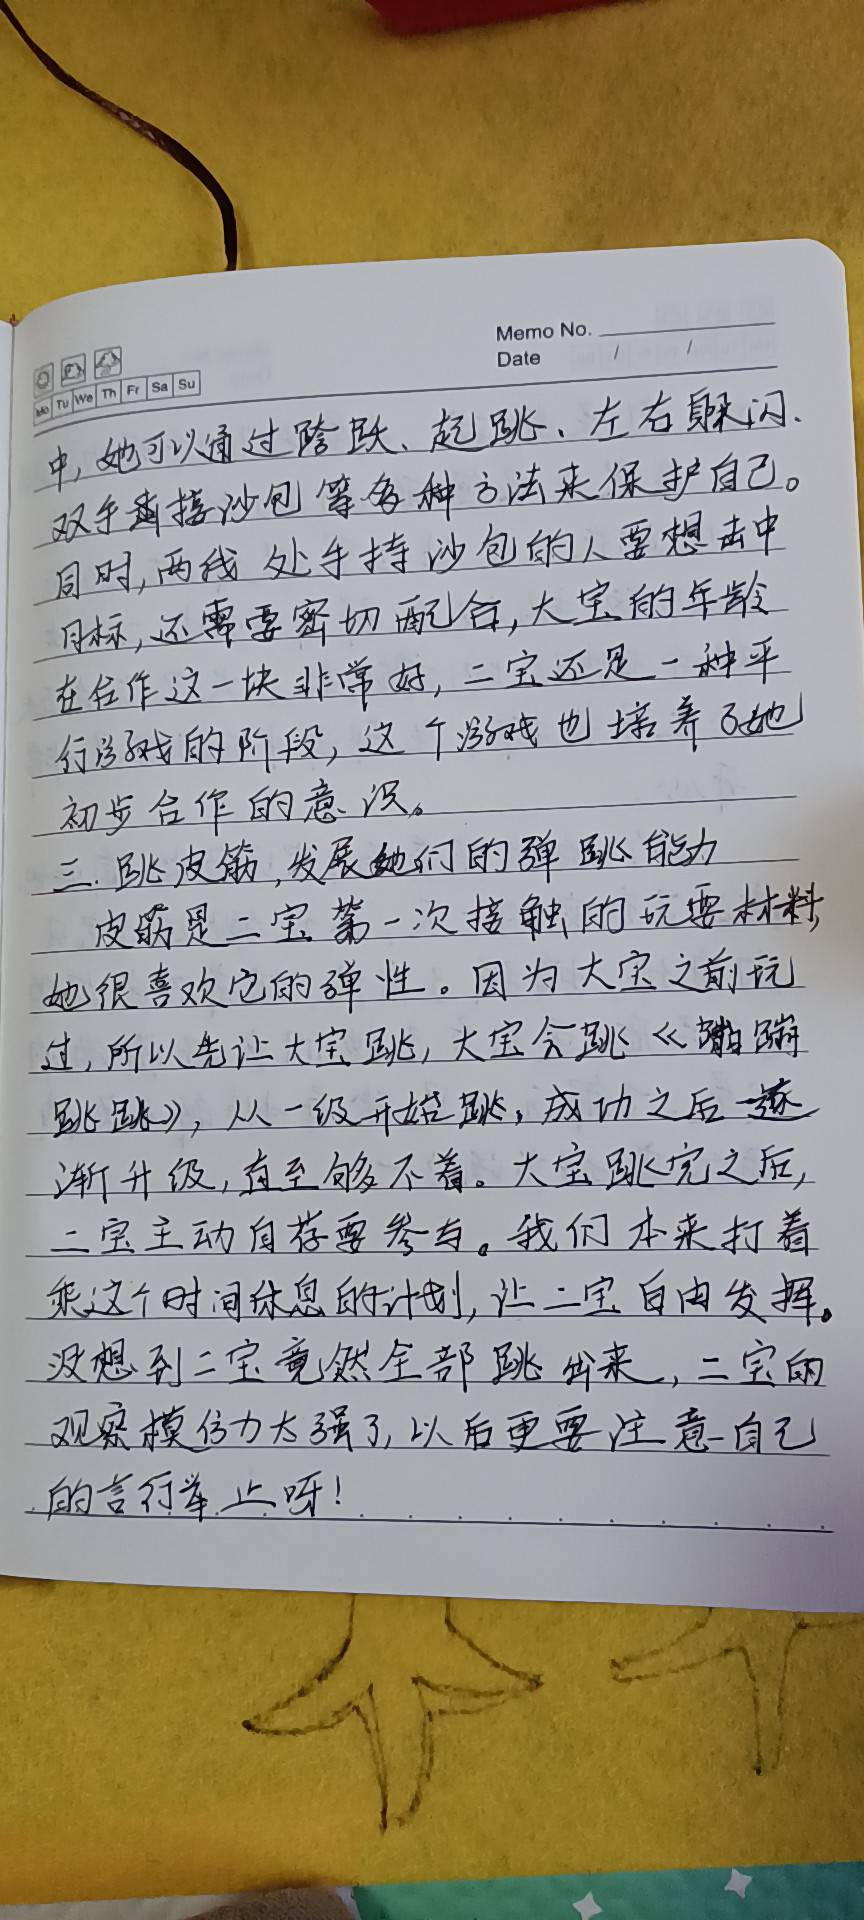 Memo No.
Date / /
Mo Tu We Th Fr Sa Su
中,她可以通过跨跃、起跳、左右躲闪、
双手直接沙包等多种方法来保护自己。
同时,两线处手持沙包的人要想击中
目标,还需要密切配合,大宝的年龄
在合作这一块非常好,二宝还是一种平
行游戏的阶段,这个游戏也培养了她
初步合作的意识。
三.跳皮筋,发展她们的弹跳能力
皮筋是二宝第一次接触的玩耍材料,
她很喜欢它的弹性。因为大宝之前玩
过,所以先让大宝跳,大宝会跳《蹦蹦
跳跳》,从一级开始跳,成功之后逐
渐升级,直至够不着。大宝跳完之后,
二宝主动自荐要参与。我们本来打着
乘这个时间休息的计划,让二宝自由发挥。
没想到二宝竟然全部跳出来,二宝的
观察模仿力太强了,以后更要注意自己
的言行举止呀!